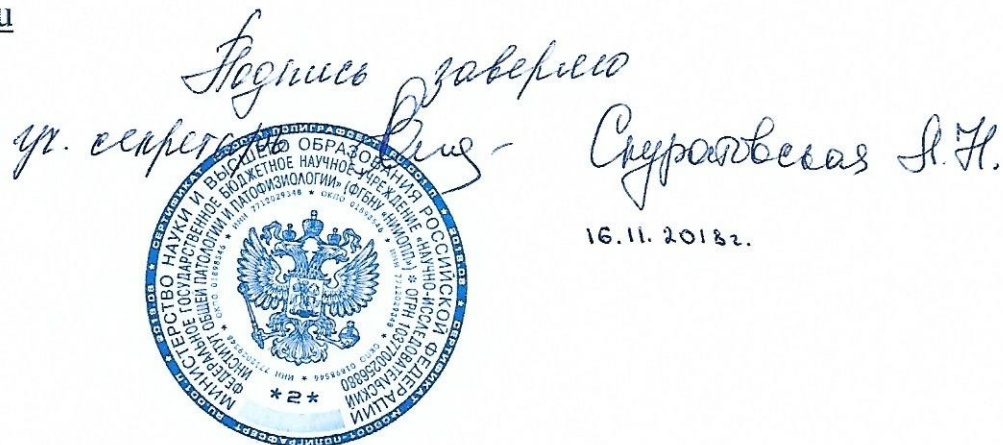 и
Подпись заверяю
уч. секретарь Скуратовская Л.Н.
16.11.2018г.
МИНИСТЕРСТВО НАУКИ И ВЫСШЕГО ОБРАЗОВАНИЯ РОССИЙСКОЙ ФЕДЕРАЦИИ
ФЕДЕРАЛЬНОЕ ГОСУДАРСТВЕННОЕ БЮДЖЕТНОЕ НАУЧНОЕ УЧРЕЖДЕНИЕ «НАУЧНО-ИССЛЕДОВАТЕЛЬСКИЙ
ИНСТИТУТ ОБЩЕЙ ПАТОЛОГИИ И ПАТОФИЗИОЛОГИИ» (ФГБНУ «НИИОПП») * ОГРН 1037700256880
* ИНН 7712029348 * ОКПО 01898546
*2*